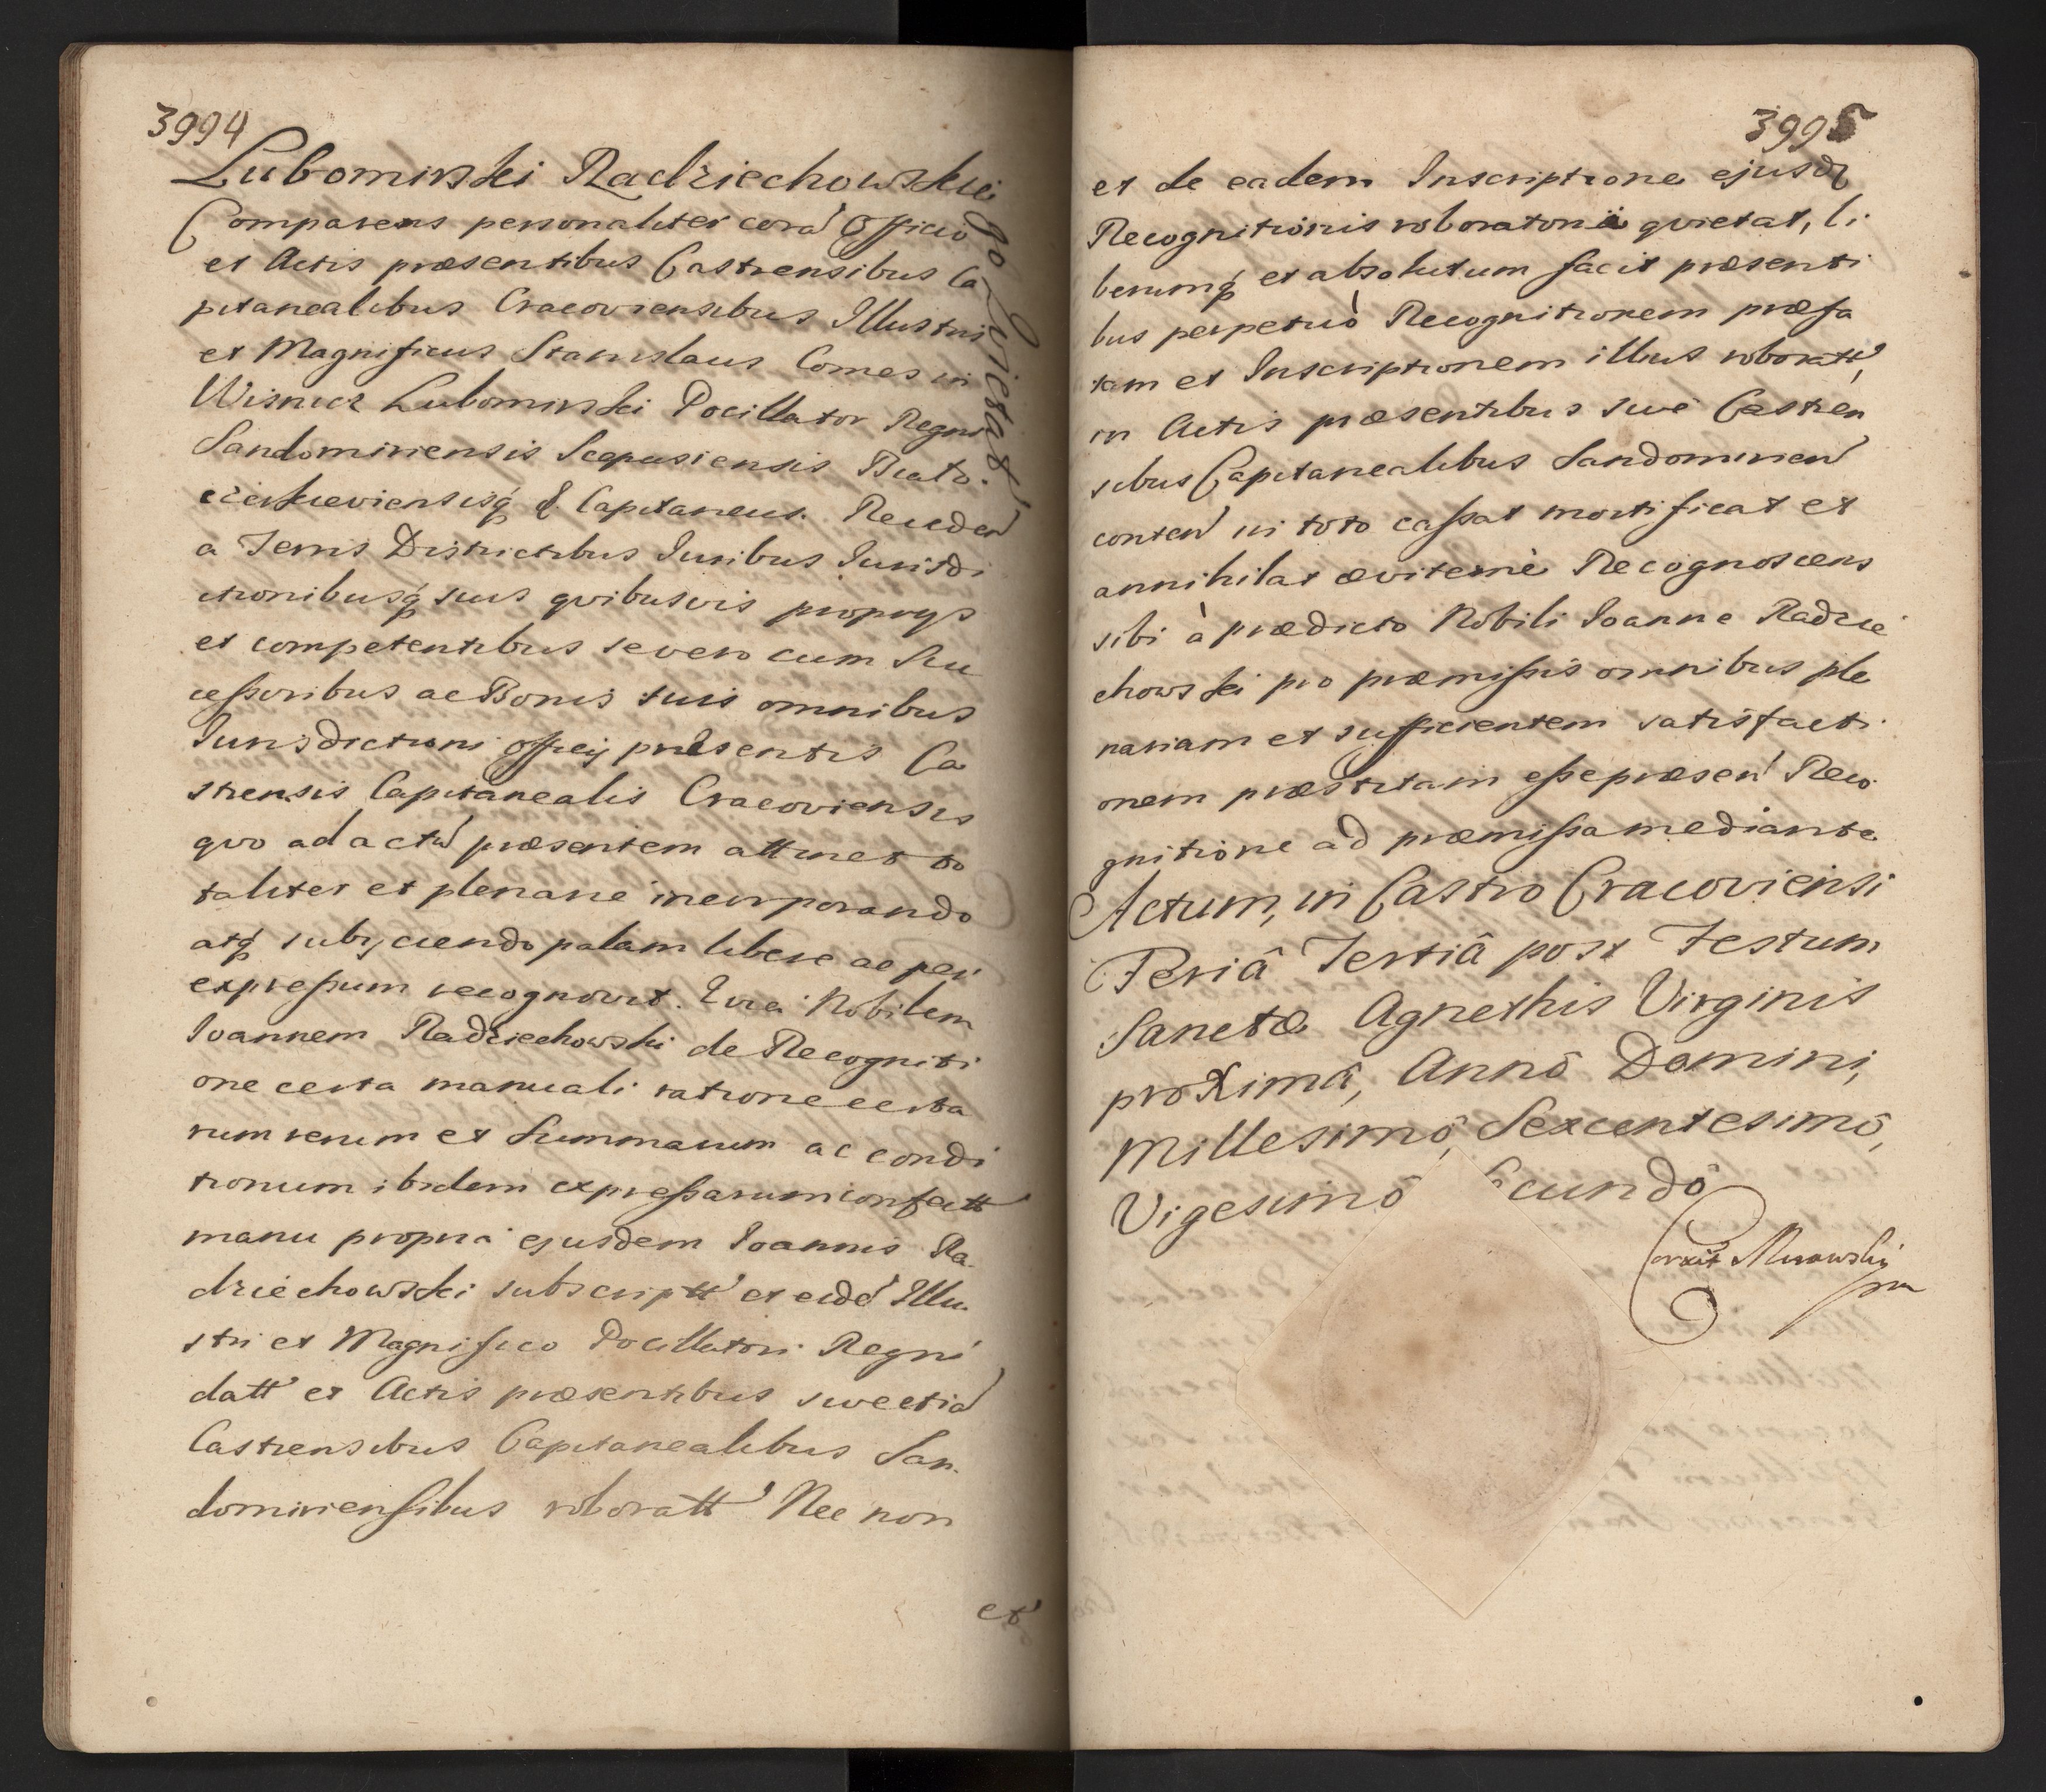 3994
Lubomirski Radziechowskie
go Qvietat
Comparens personaliter corā Officio
et Actis præsentibus Castrensibus Ca
pitanealibus Cracoviensibus Illustris
et Magnificus Stanislaus Comes in
Wisnicz Lubomirski Pocillator Regni
Sandomiriensis Scepusiensis Biało.
cerkieviensisq₃ & Capitaneus. Receden̄
a Terris Districtibus Iuribus Iurisdi
ctionibusq₃ suis qvibusvis proprys
et competentibus se vero cum Suc
cessoribus ac Bonis suis omnibus
Iurisdictioni Officij præsentis Ca
strensis Capitanealis Cracoviensis
qvo ad actū præsentem attinet to
taliter et plenarie incorporando
atq₃ subyciendo palam libere ac per
expressum recognovit. Qvia Nobilem
Ioannem Radziechowski de Recogniti
one certa manuali ratione certa
rum rerum et Summarum ac condi
tionum ibidem expressarum confectt
manu propria ejusdem Ioannis Ra
dziechowski subscriptt et eidē Illu.
stri et Magnifico Pocillatori Regni
datt et Actis præsentibus sive etiā
Castrensibus Capitanealibus San.
domiriensibus roboratt Nec non
et
3995
et de eadem Inscriptione ejusd₃
Recognitionis roboratoria qvietat, li
berumq₃ et absolutum facit præsenti
bus perpetuò Recognitionem præfa
tam et Inscriptionem illius roboratt
in Actis præsentibus sive Castren
sibus Capitanealibus Sandomirien̄
conten̄ in toto cassat mortificat et
annihilat æviternè Recognoscens
sibi à prædicto Nobili Ioanne Radzie
chowski pro præmissis omnibus ple
nariam et sufficientem satisfacti
onem præstitam esse præsen̄ Reco
gnitione ad præmissa mediante.
Actum, in Castro Cracoviensi
Feriâ Tertiâ post Festum
Sanctæ Agnethis Virginis
proximâ, Annô Domini,
Millesimô, Sexcentesimô,
Vigesimô Secundô
Corexit Murowski
pm